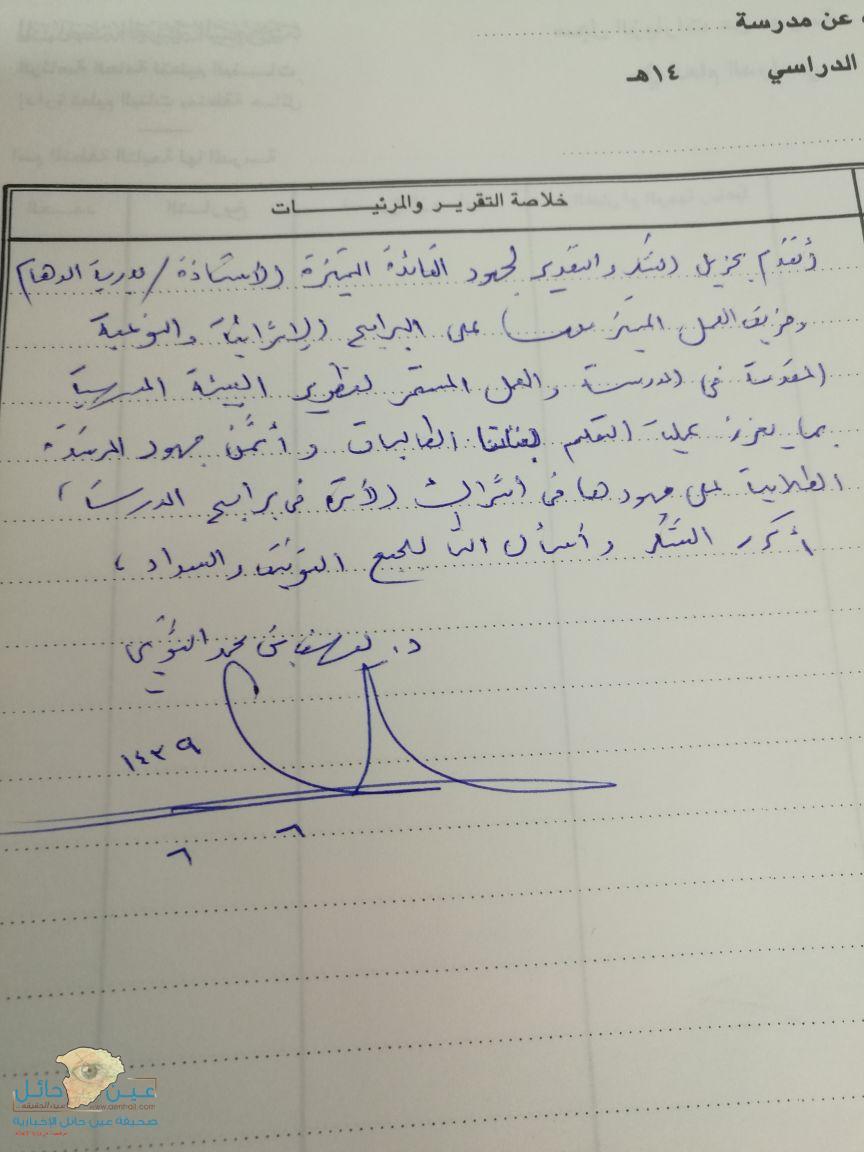 عن مدرسة
الدراسي ١٤هـ
خلاصة التقرير والمرئيـــــات
أتقدم بجزيل الشكر والتقدير لجهود القائدة المتميزة الأستاذة / بدرية الدهام
وفريق العمل المميز على البرامج الإثرائية والنوعية
المقدمة في المدرسة والعمل المستمر لتطوير البيئة المدرسية
بما يعزز عملية التعلم لبناتنا الطالبات و أثمّن جهود المرشدة
الطلابية على جهودها في اشراك الأسرة في برامج المدرسة ،
أكرر الشكر و أسأل الله للجميع التوفيق والسداد ،
د. محمد
١٤٣٩
٦
٦
عين حائل
www.aenhail.com
صحيفة عين حائل الإخبارية